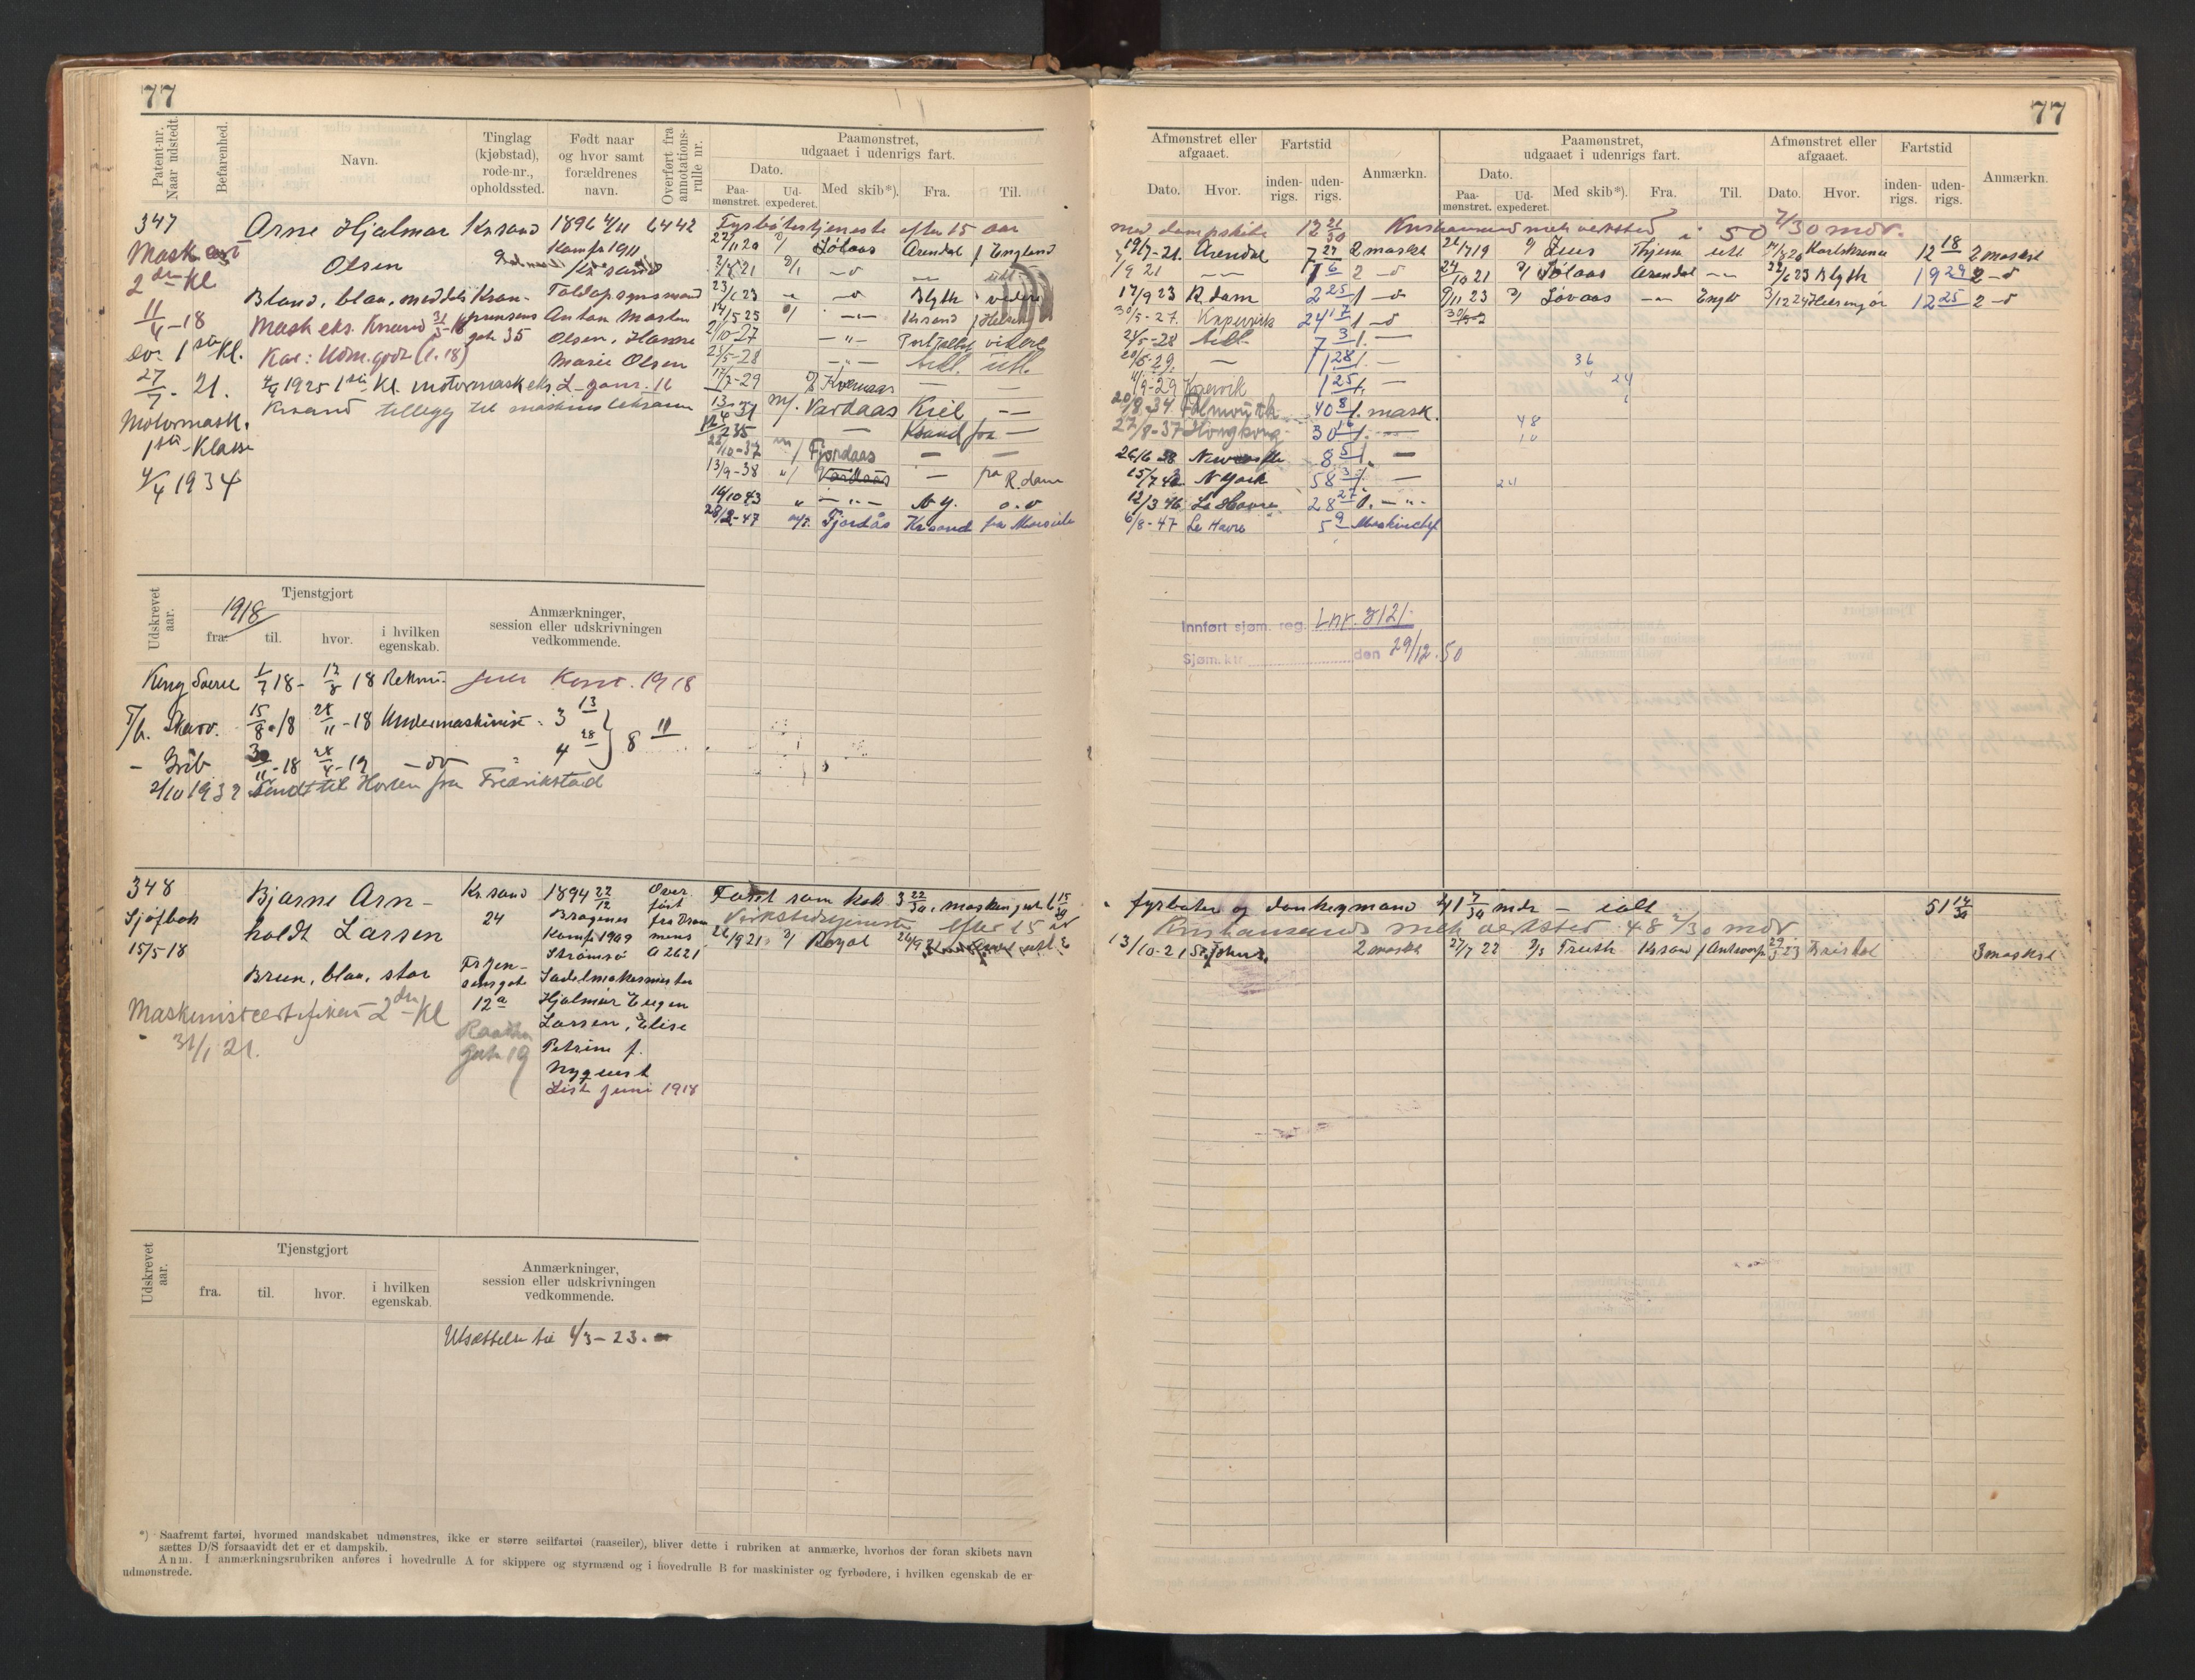 77
77
Patent-nr. Naar udstedt.
Befarenhed.
Navn.
Tinglag (kjøbstad), rode-nr., opholdssted.
Født naar og hvor samt forældrenes navn.
Overført fra annotations-rulle nr.
Paamønstret, udgaaet i udenrigs fart.
Dato.
Paa-mønstret.
Ud-expederet.
Med skib*).
Fra.
Til.
Afmønstret eller afgaaet.
Dato.
Hvor.
Fartstid
inden-rigs.
uden-rigs.
Anmærkn.
Paamønstret, udgaaet i udenrigs fart.
Dato.
Paa-mønstret.
Ud-expederet.
Med skib*).
Fra.
Til.
Afmønstret eller afgaaet.
Dato.
Hvor.
Fartstid
inden-rigs.
uden-rigs.
Anmærkn.
347
Mask. cert
2den Kl
11/4-18
ovr 1ste Kl.
27/7-21.
Motormask.
1ste Klasse
4/4 1934
Arne Hjalmar
Olsen
Blond, blaa, middels
Mask eks. Krsand 31/3-18
Kar: Udm. godt (1.18)
1925 1ste Kl. motormask eks.
Krsand tillegg til maskinisteksam
Krsand
gate 35
1896 4/11
Kampf 1911
Kr sand
Toldopsynsmand
Anton Martin
Olsen, Hanne
Marie Olsen
6442
Fyrbøtertjeneste efter 15 aar
med dampskibe 12 21/30 Kristiansand mek verksted i 50 7/30 mdr.
22/11 20 Løvaas Arendal England
19/7-21. Arendal 7 27 2 maskt
26/7 19 Zeus Thjem utl 14/8 20 Karlskrona 12 18 2 maskt
1/9 21 1 6 2 -o
24/10 21 Løvaas Arendal 1/6 23 Blyth 19 29 2 -o
23/6 23 Blyth videre
17/9 23 R.dam 2 25 1 -o
9/11 23 Løvaas Engl 3/12 24 Helsingør 12 25 2 -o
14/5 25 Krsand Helsing
30/5-27. Kopervik 24 17 1 -o
21/10-27 Port Talbot videre
21/5-28 7 3 1. -
21/5-28 utl.
20/6-29. 11 28 1. -
17/7-29 Kvernaas
11/9-29 Kopervik 1 25 1. -
13/4 31 m/ Vardaas Kiel
20/8-34 Falmouth 40 8 1. mask.
12/2 35 Ksand fra
27/8-37 Hongkong 30 16 1. -
22/10-37 m/ Fjordaas
26/6 38 Newcastle 8 5 1. -
13/9-38 Vardaas fra R.dam
15/7 43 N York 58 3 1. -
16/10 43 N Y. o. o
12/3 46 Le Havre 28 27 1. - " -
28/2-47 m/s. Fjordås Krsand fra Marseile
6/8-47 Le Havre 5 9 Maskinchef
36
24
48
10
24
Innført sjøm. reg. Lnr. 3121
Sjøm.ktr. den 29/12.50
Udskrevet aar.
Tjenstgjort
1918
fra.
til.
hvor.
i hvilken egenskab.
Anmærkninger, session eller udskrivningen vedkommende.
1/7 18 - 12/8 18 Rekrut. 1918
T/b. Skarv. 15/8-18 28/11-18 Undermaskinist. 3 13
- Grib 30/11-18 28/4-19 -oo- 4 28 } 8 11
2/10 1932 Sendt til Horten fra Fredrikstad
348
Sjøfbok
15/5-18
Bjarne Arn-
holdt Larsen
Brun, blaa, stor
Maskinistcertifikat 2den Kl
31/1 21.
Kr.sand
24
12a
1894 22/12
Bragenes
Kampf 1909
Strømsø
Sadelmakermester
Hjalmar Eugen
Larsen, Elise
Petrine f.
Nyquist
List juni 1918
Over-
ført
fra Dram
mens
A 2621
Faret som kok 3 22/30, maskingut 6 15/30
fyrbøter og donkeymand 41 7/30 mdr - ialt 51 14/30
Verkstedstjeneste efter 15 år
Kristiansands mek verksted 48 2/30 mdr
26/9 21 Royal 26/9 21
13/10-21 St. Johns. 2 maskt 27/7 22 Truth Krsand Antwerp 29/3 23 Bristol 3 maskt
Udskrevet aar.
Tjenstgjort
fra.
til.
hvor.
i hvilken egenskab.
Anmærkninger, session eller udskrivningen vedkommende.
Utsættelse til 1/3-23.
*) Saafremt fartøi, hvormed mandskabet udmønstres, ikke er større seilfartøi (raaseiler), bliver dette i rubriken at anmærke, hvorhos der foran skibets navn
sættes D/S forsaavidt det er et dampskib.
Anm. I anmærkningsrubriken anføres i hovedrulle A for skippere og styrmænd og i hovedrulle B for maskinister og fyrbødere, i hvilken egenskab de er
udmønstrede.